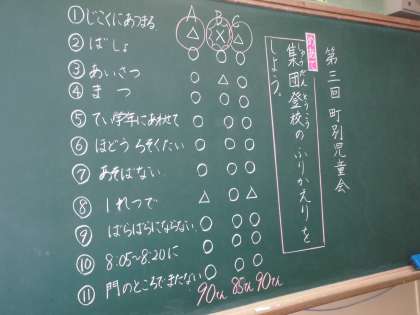 第三回 町別児童会
集団登校のふりかえりを
しゅうだんとうこう
しよう。
A B C
①じこくにあつまる △ × △
②ばしょ ○ ○ ○
③あいさつ ○ △ ○
④まつ ○ ○ ○
⑤てい学年にあわせて ○ ○ ○
⑥ほどう ろそくたい ○ ○ ○
⑦あそばない ○ ○ ○
⑧1れつで △ ○ △
⑨ばらばらにならない ○ ○ ○
⑩8:05~8:20に ○ ○ ○
⑪門のところでまたない ○ ○ ○
90てん 85てん 90てん